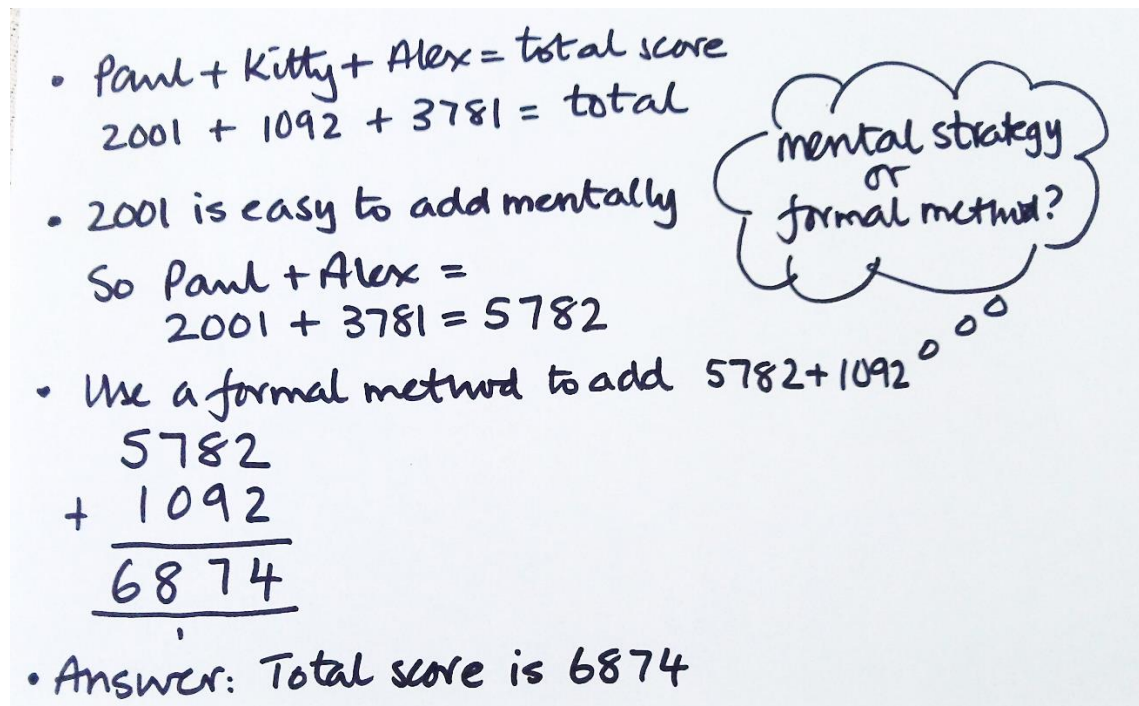 • Paul + Kitty + Alex = total score
2001 + 1092 + 3781 = total
mental strategy
or
formal method?
• 2001 is easy to add mentally
So Paul + Alex =
2001 + 3781 = 5782
• Use a formal method to add 5782 + 1092
5782
+ 1092
6874
1
• Answer: Total score is 6874